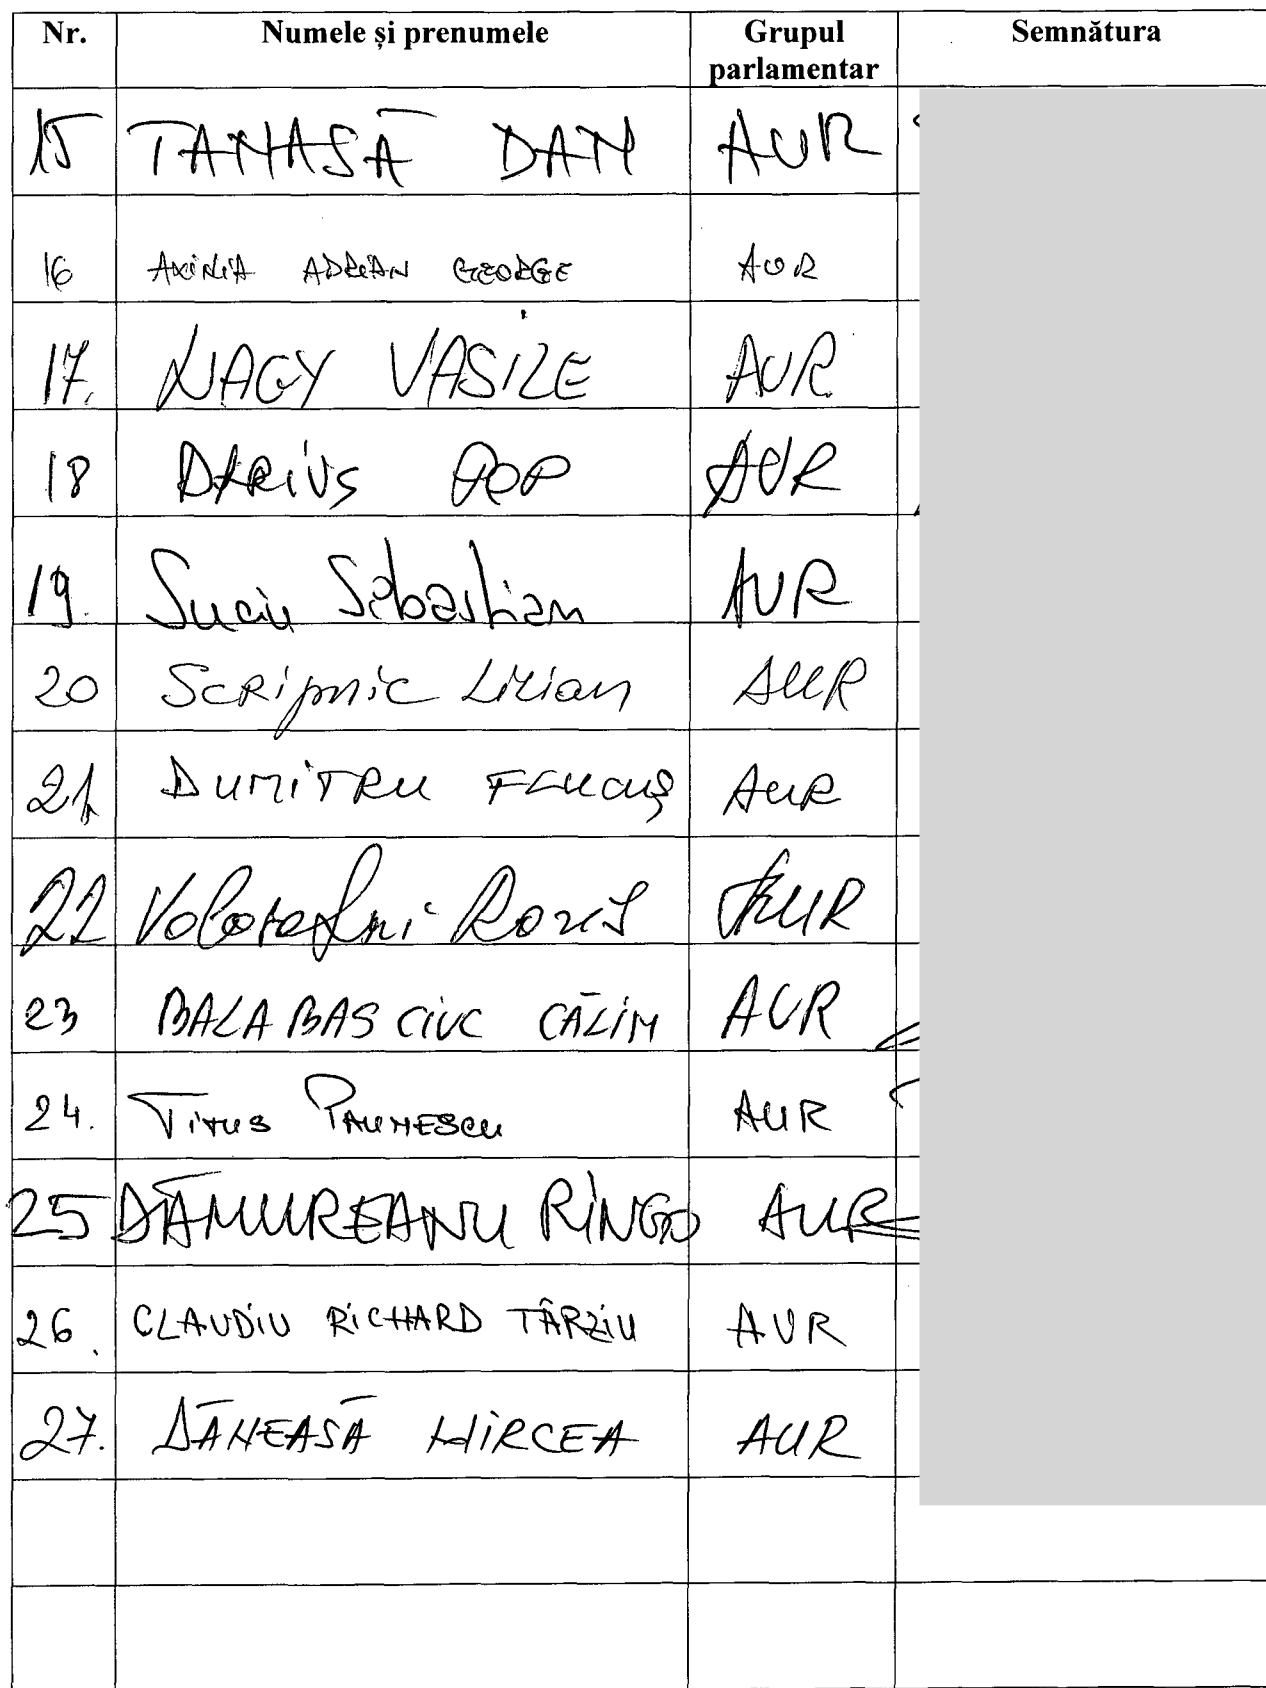 Nr. Numele și prenumele Grupul parlamentar Semnătura
15 TANASĂ DAN AUR
16 AXINIA ADRIAN GEORGE AUR
17. NAGY VASILE AUR
18 DARIUS POP AUR
19. Suciu Sebastian AUR
20 Scripnic Lilian AUR
21. DUMITRU FLUCUȘ AUR
22 AUR
23 BALABASCIUC CĂLIN AUR
24. TITUS PAUNESCU AUR
25 DĂMUREANU RINGO AUR
26. CLAUDIU RICHARD TÂRZIU AUR
27. DĂNEASĂ MIRCEA AUR